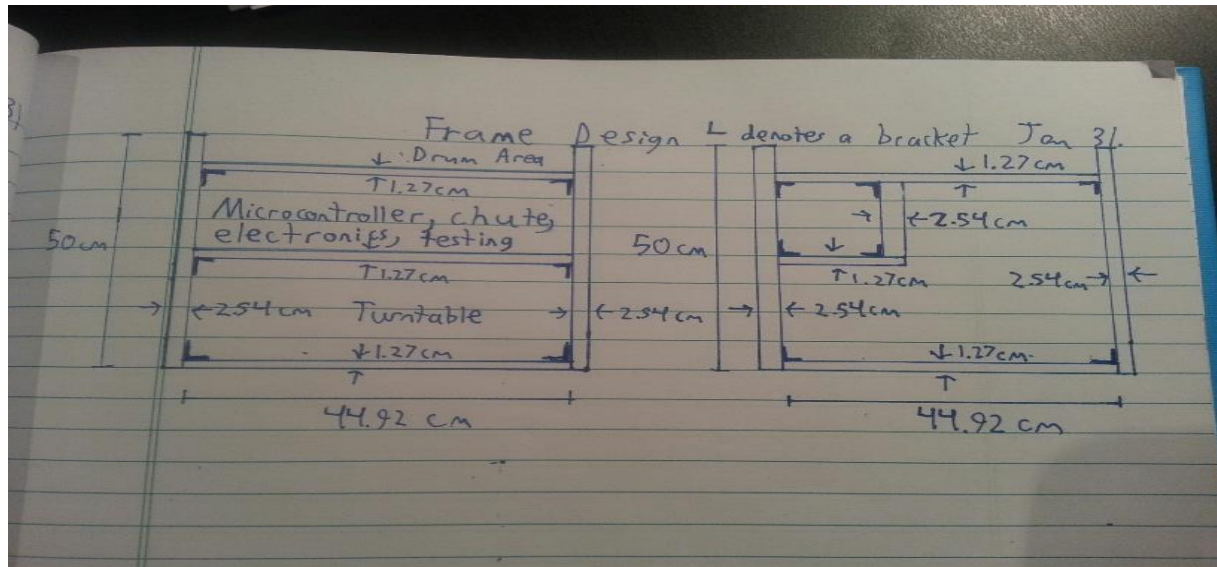 31
Frame Design L denotes a bracket Jan 31.
↓ Drum Area
↑1.27cm
Microcontroller, chute,
electronics, testing
50cm
↑1.27cm
→ ←2.54cm Turntable → ←2.54cm
↓1.27cm
↑
44.92 cm
↓1.27cm
↑
→ ←2.54cm
50cm
↓
↑1.27cm
2.54cm→ ←
→ ←2.54cm
↓1.27cm
↑
44.92 cm